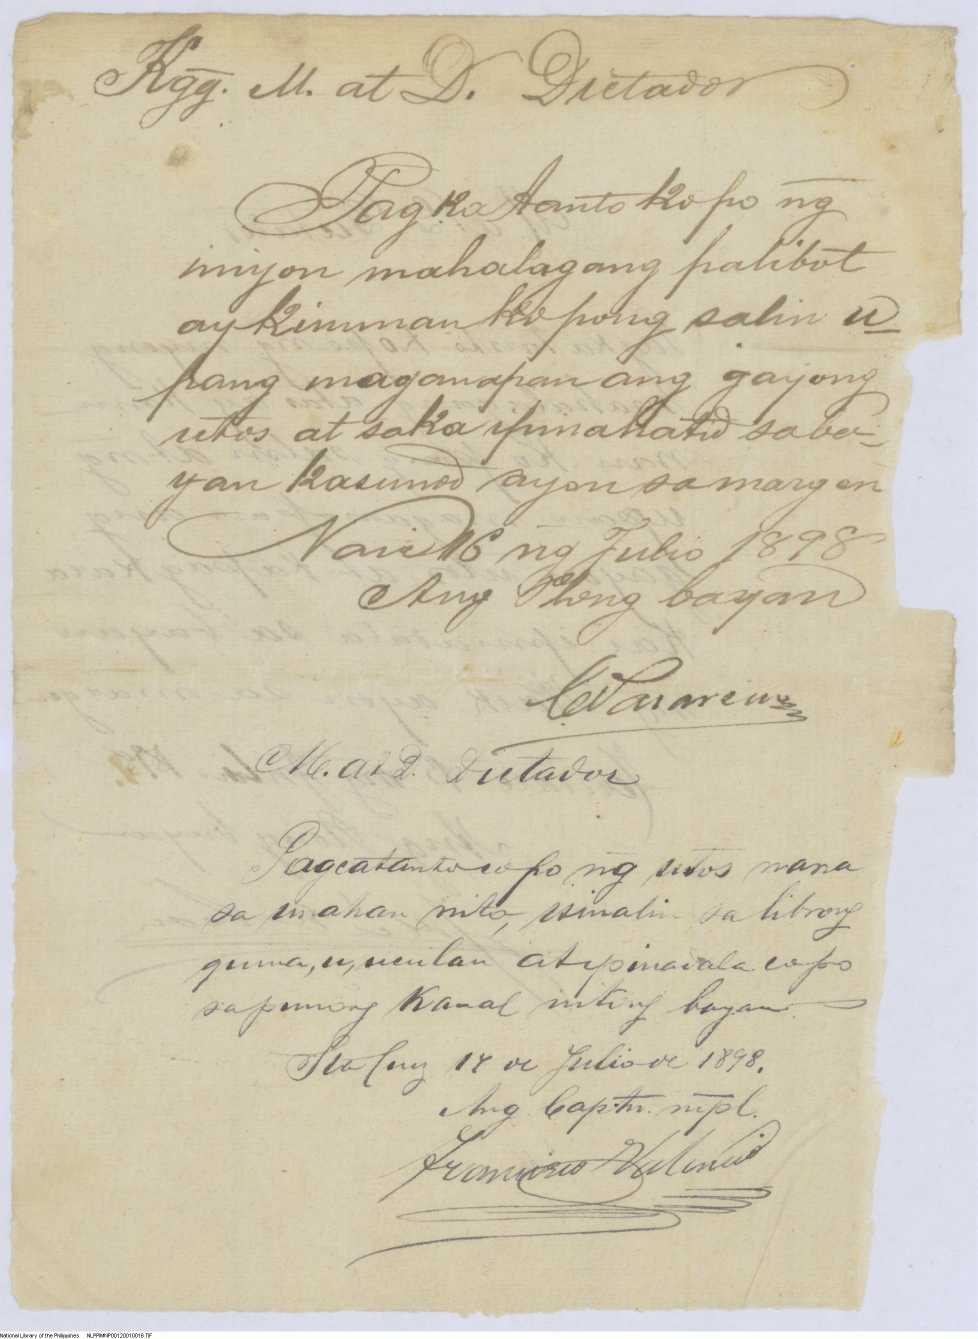 Kgg. M. at D. Dictador
Pagka tanto ko po ng̃
iniyon mahalagang palibot
ay kinunan ko pong salin u
pang maganapan ang gayong
utos at saka ipinahatid sa ba-
yan kasunod ayon sa margen
Naic 16 ng̃ Julio 1898
Ang Plong bayan
M. at D. Dictador
Pagcatanto co po ng̃ utos nana
sa unahan nito, isinalin sa librong
quina,u,uculan at ipinadala co po
sa punong Kanal niting bayan.
Sta Cruz 17 de Julio de 1898.
Ang Captn. mpl.
Francisco Valencia
National Library of the Philippines NLPPIMNP00120010018.TIF